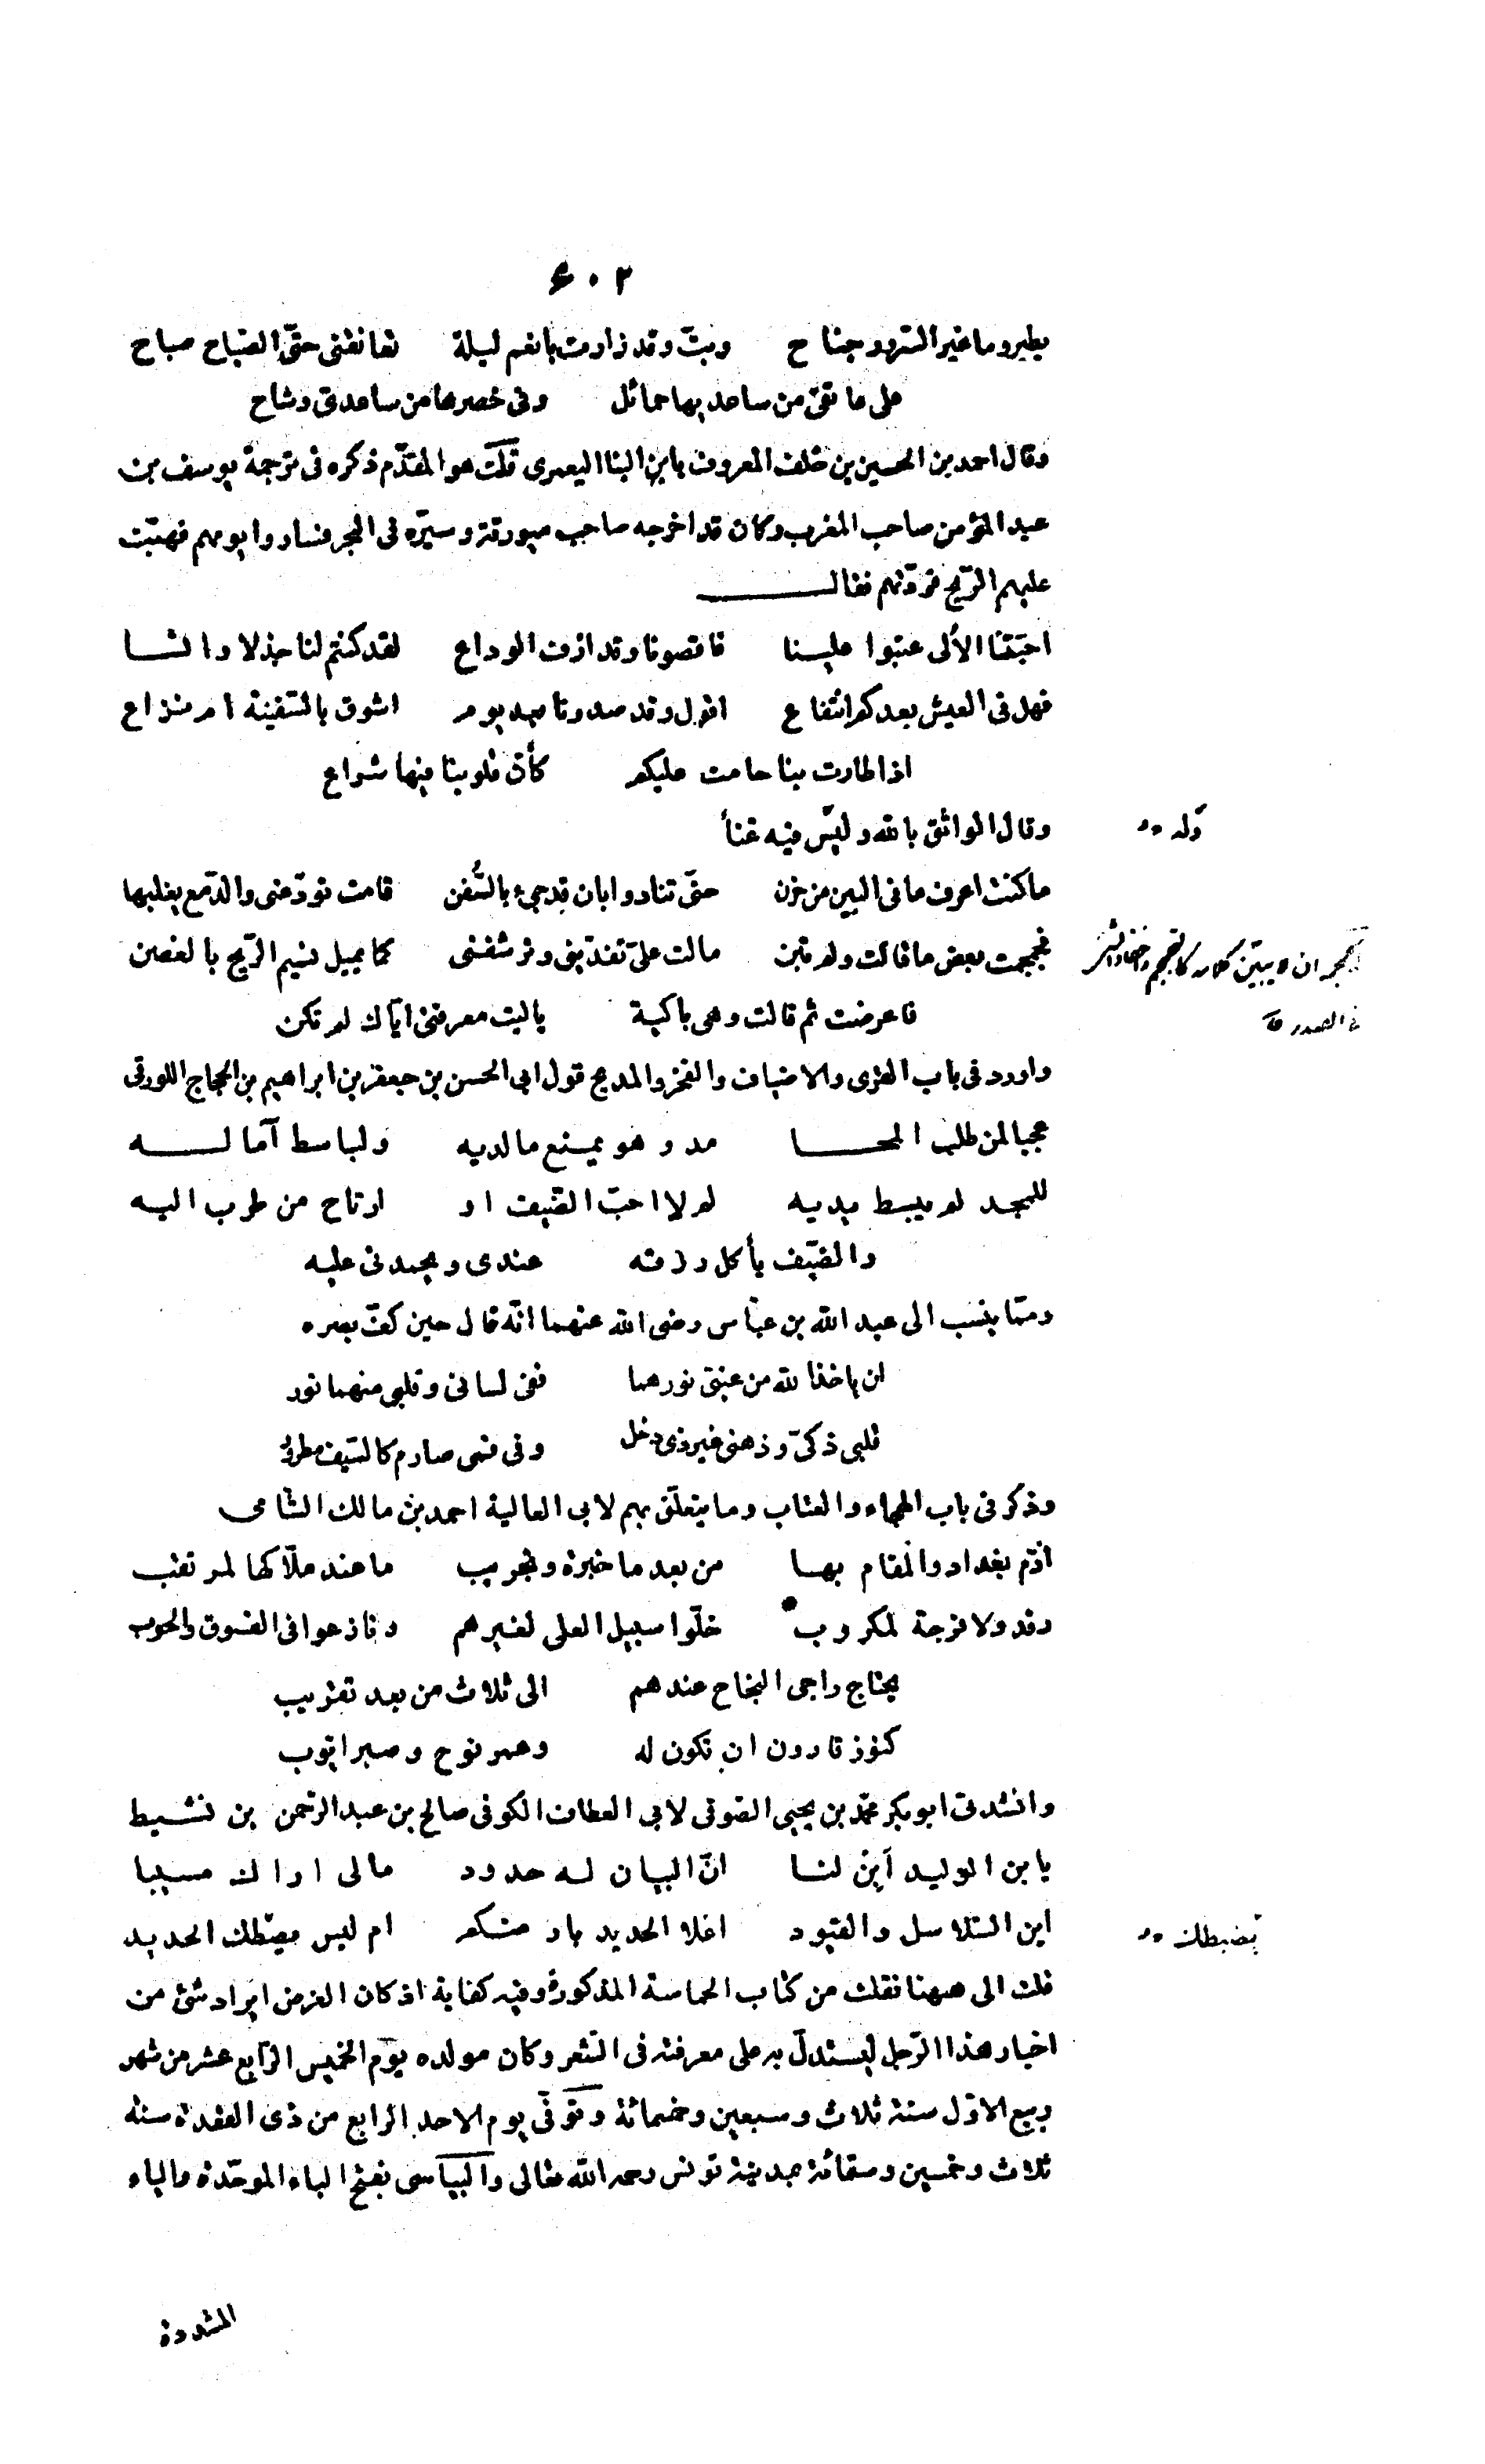 ۶۰۲
يطير وما غير السرور جناح وبتّ وقد زارت بانعم ليلة تعانقنى حتّى الصّباح صباح
على عاتقى من ساعديها حمائل وفى خصرها من ساعدىّ وشاح
وقال احمد بن الحسين بن خلف المعروف بابن البنا اليعمرى قلت هو المقدّم ذكره فى ترجمة يوسف بن
عبد المؤمن صاحب المغرب وكان قد اخرجه صاحب ميورقة وسيّره فى البحر فساروا يومهم فهبّت
عليهم الرّيح فردّتهم فقال
احبّتنا الألى عتبوا علينا فاقصونا وقد ازف الوداع لقد كنتم لنا جذلا وانسا
فهل فى العيش بعدكم انتفاع اقول وقد صدرنا بعد يوم اشوق بالسّفينة ام نزاع
اذا طارت بنا حامت عليكم كأنّ قلوبنا فيها شراع
وقال الواثق بالله وليس فيه غنأ
وله
ما كنت اعرف ما فى البين من حزن حتّى تنادوا بان قد جىء بالسّفن قامت تودّعنى والدّمع يغلبها
فجمجمت بعض ما قالت ولم تبن مالت علىّ تفدّينى وترشفنى كما يميل نسيم الرّيح بالغصن
ان لا يبيّن كلامه كالتجمجم واخفاء الشئ
فى الصدر ق
فاعرضت ثم قالت وهى باكية يا ليت معرفتى ايّاك لم تكن
واورد فى باب القرى والاضياف والفخر والمديح قول ابى الحسن بن جعفر بن ابراهيم بن الحجاج اللورقى
عجبا لمن طلب المحا مد وهو يمنع ما لديه ولباسط آماله
للمجد لم يبسط يديه لم لا احبّ الضّيف او ارتاح من طرب اليه
والضّيف يأكل رزقه عندى ويحمدنى عليه
وممّا ينسب الى عبد الله بن عبّاس رضى الله عنهما انّه قال حين كفّ بصره
ان ياخذ الله من عينىّ نورهما ففى لسانى وقلبى منهما نور
قلبى ذكىّ وذهنى غير ذى دخل وفى فمى صارم كالسّيف مطرور
وذكر فى باب الهجاء والعتاب وما يتعلّق بهم لابى العالية احمد بن مالك الشّامى
اذمّ بغداد والمقام بها من بعد ما خبرة وتجريب ما عند ملّاكها لمرتغب
رفد ولا فرجة لمكروب خلّوا سبيل العلى لغيرهم ونازعوا فى الفسوق والحوب
يحتاج راجى النجاح عندهم الى ثلاث من بعد تقريب
كنوز قارون ان تكون له وعمر نوح وصبر ايّوب
وانشدنى ابو بكر محمّد بن يحيى الصّولى لابى العطاف الكوفى صالح بن عبد الرّحمن بن نشيط
يا بن الوليد اَبِنْ لنا انّ البيان له حدود ما لى اراك مسيبا
اين السّلاسل والقيود اغلا الحديد بارضكم ام ليس يضبطك الحديد
يضبطك
قلت الى ههنا نقلت من كتاب الحماسة المذكورة وفيه كفاية اذ كان الغرض ايراد شئ من
اخبار هذا الرّجل ليستدلّ به على معرفته فى الشّعر وكان مولده يوم الخميس الرّابع عشر من شهر
ربيع الاوّل سنة ثلاث وسبعين وخمسمائة وتوفّى يوم الاحد الرّابع من ذى القعدة سنة
ثلاث وخمسين وستمائة بمدينة تونس رحمه الله تعالى والبيّاسى بفتح الباء الموحّدة والياء
المشددة